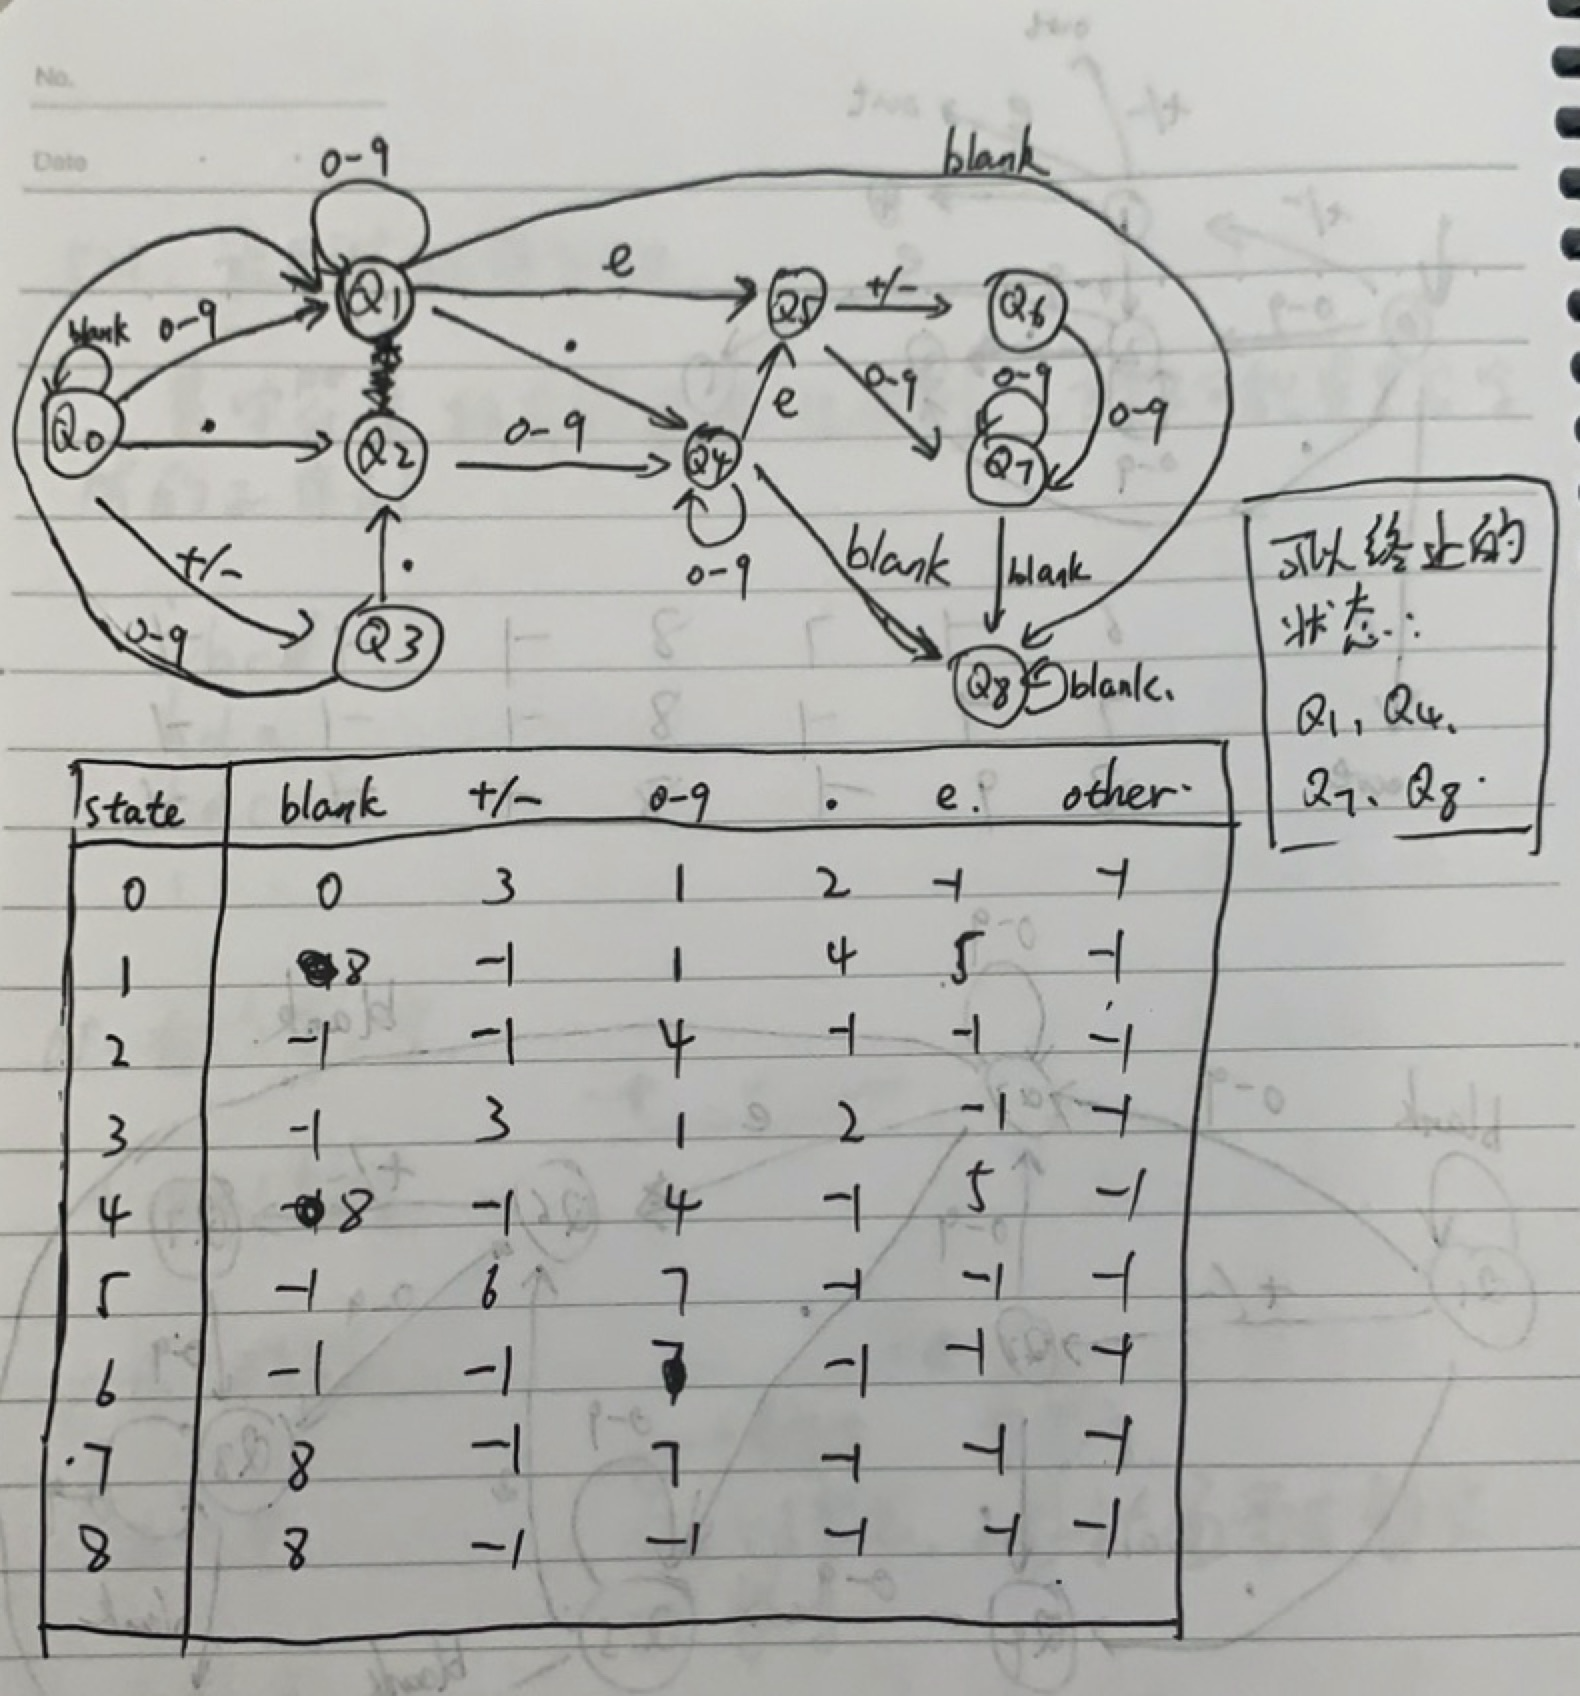 No.
Date
0-9
blank
blank 0-9
Q1
e
Q5
+/-
Q6
.
0-9
0-9
0-9
Q0
.
Q2
0-9
Q4
e
Q7
+/-
.
0-9
blank
blank
0-9
Q3
Q8 blank.
可以终止的
状态:
Q1、Q4、
Q7、Q8.
state blank +/- 0-9 . e. other.
0 0 3 1 2 -1 -1
1 8 -1 1 4 5 -1
2 -1 -1 4 -1 -1 -1
3 -1 3 1 2 -1 -1
4 8 -1 4 -1 5 -1
5 -1 6 7 -1 -1 -1
6 -1 -1 7 -1 -1 -1
7 8 -1 7 -1 -1 -1
8 8 -1 -1 -1 -1 -1